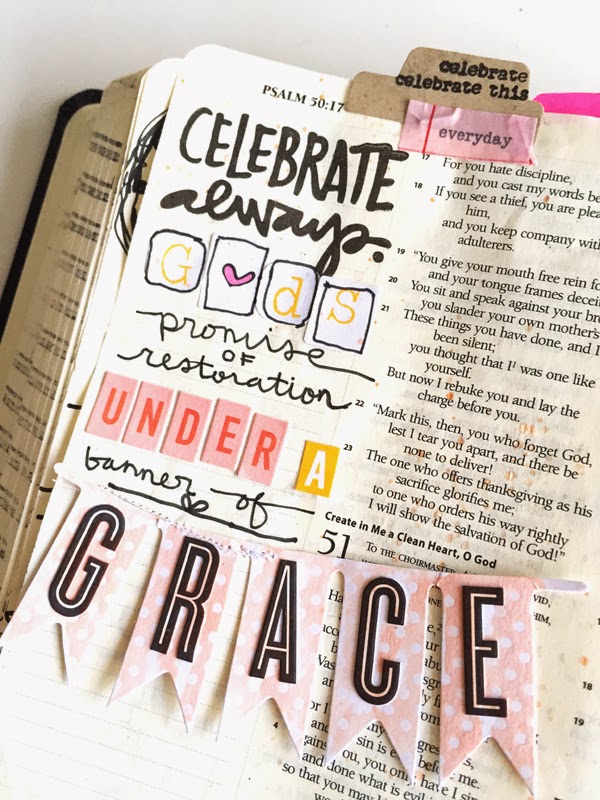 celebrate
celebrate this
everyday
PSALM 50:17
CELEBRATE
always.
G♥dS
promise
OF
restoration
UNDER A
banner of
GRACE
17 For you hate discipline,
and you cast my words be
18 If you see a thief, you are plea
him,
and you keep company with
adulterers.
19 "You give your mouth free rein fo
and your tongue frames deceit
20 You sit and speak against your bro
you slander your own mother's
21 These things you have done, and I
been silent;
you thought that I was one like
yourself.
But now I rebuke you and lay the
charge before you.
22 "Mark this, then, you who forget God,
lest I tear you apart, and there be
none to deliver!
23 The one who offers thanksgiving as his
sacrifice glorifies me;
to one who orders his way rightly
I will show the salvation of God!"
Create in Me a Clean Heart, O God
51 TO THE CHOIRMASTER
4
you, you only, have I sin
and done what is evil
so that you may
19